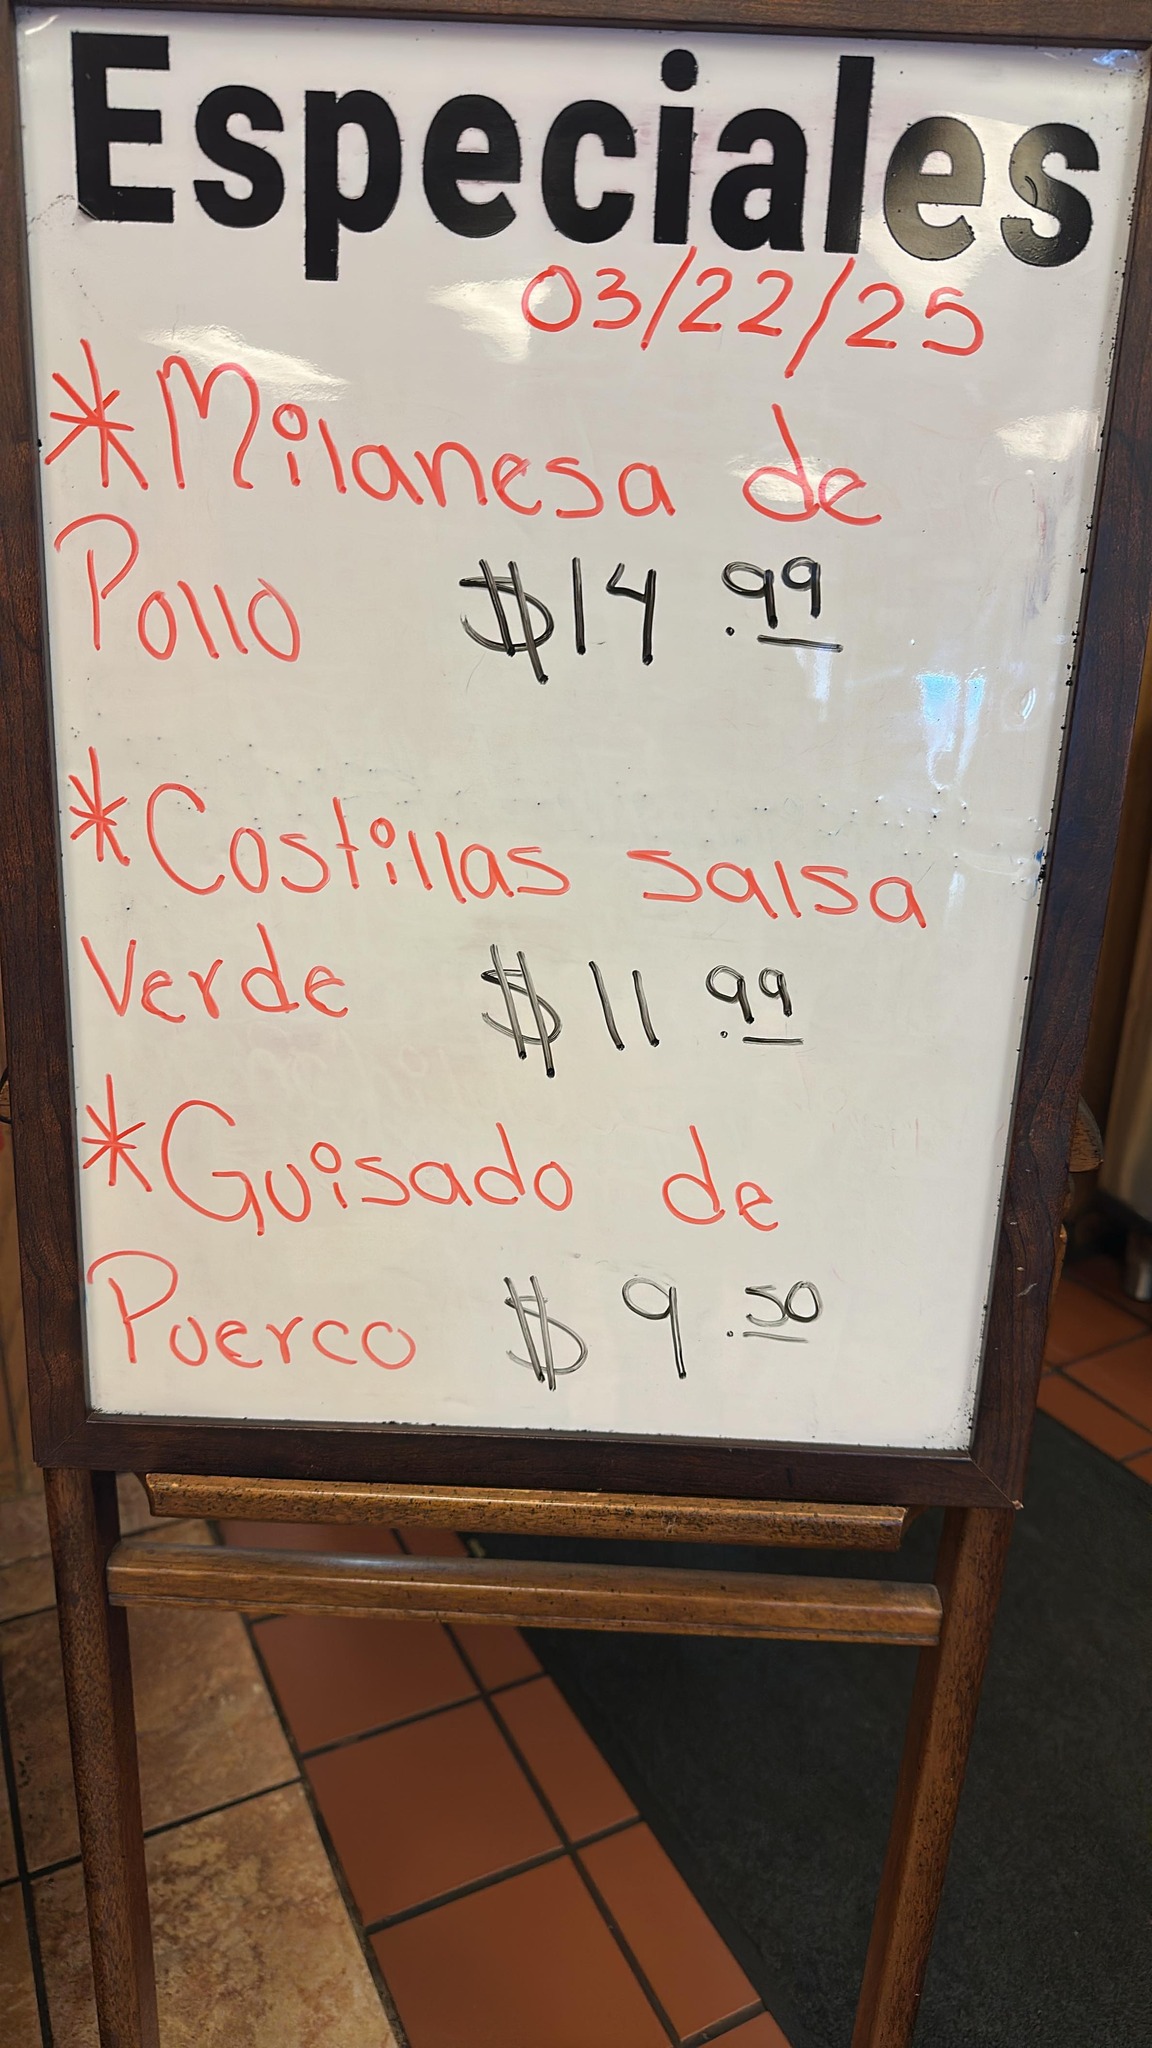 Especiales
03/22/25
*Milanesa de
Pollo $14.99
*Costillas salsa
Verde $11.99
*Guisado de
Puerco $9.50